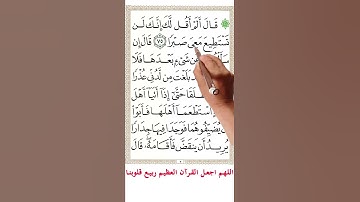 قَالَ أَلَمْ أَقُل لَّكَ إِنَّكَ لَن
تَسْتَطِيعَ مَعِىَ صَبْرًا ٧٥ قَالَ إِن
سَأَلْ مِن شَىْءٍ بَعْدَهَا فَلَا
بَلَغْتَ مِن لَّدُنِّى عُذْرًا
فَٱنطَلَقَا حَتَّىٰٓ إِذَآ أَتَيَآ أَهْلَ
ٱسْتَطْعَمَآ أَهْلَهَا فَأَبَوْا۟
يُضَيِّفُوهُمَا فَوَجَدَا فِيهَا جِدَارًا
يُرِيدُ أَن يَنقَضَّ فَأَقَامَهُۥ ۖ قَالَ
اللهم اجعل القرآن العظيم ربيع قلوبنا